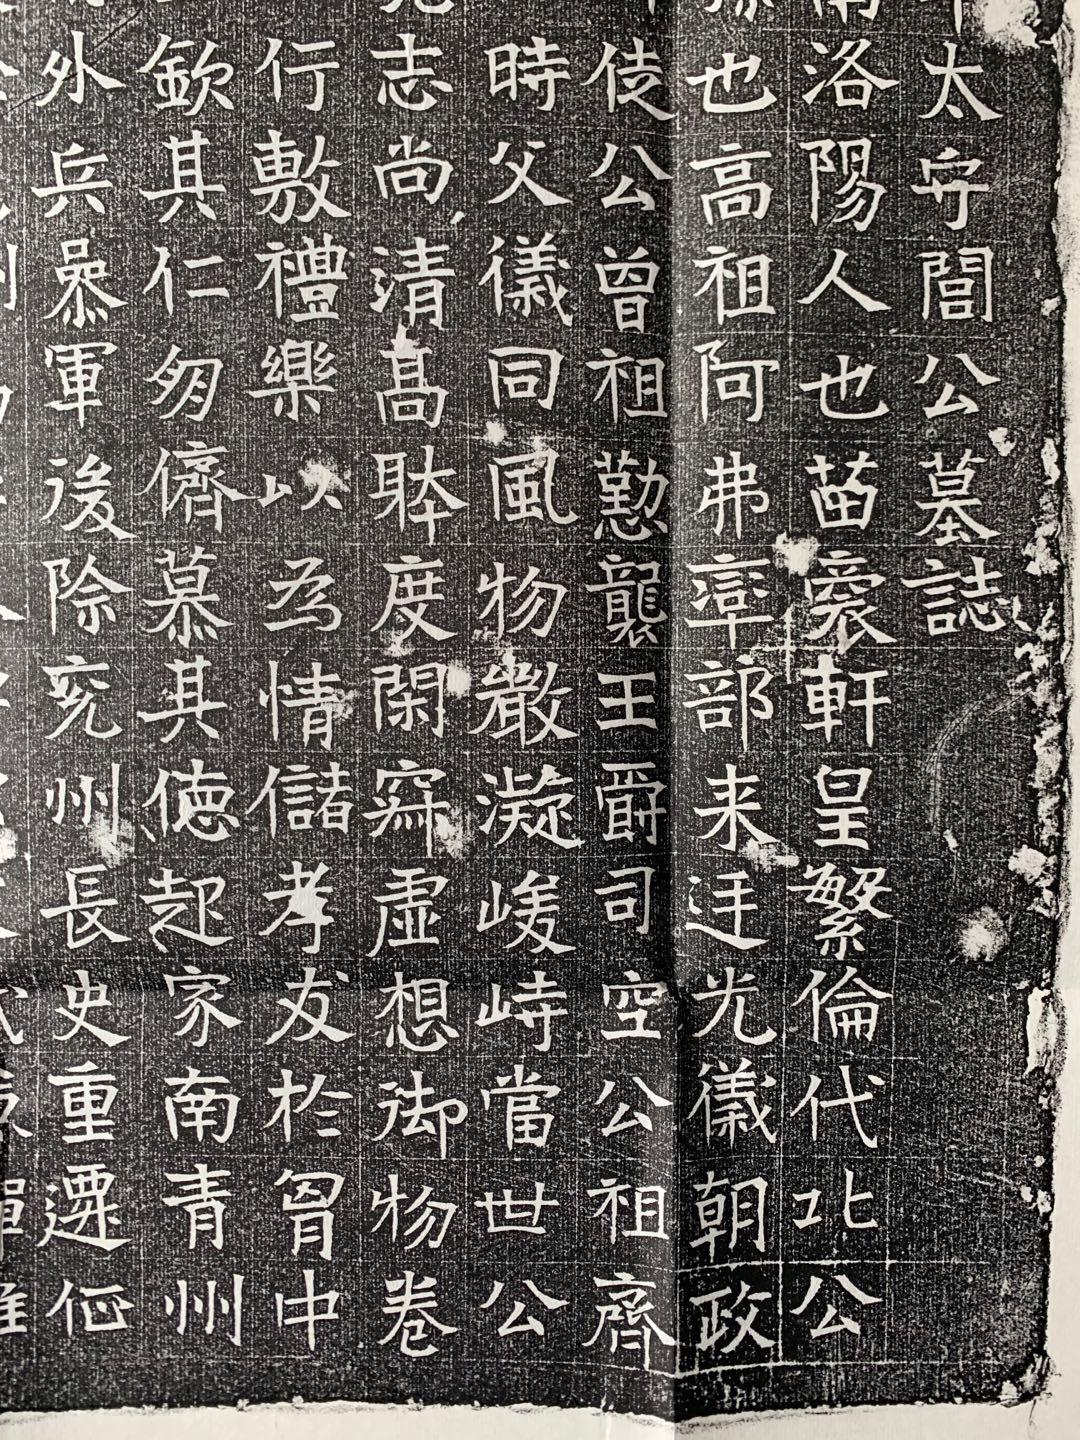 太守閭公墓誌
洛陽人也苗裔軒皇繁倫代北公
也高祖阿弗率部来迋光儀朝政
徒公曾祖懃襲王爵司空公祖齊
時父儀同風物嚴凝峻峙當世公
志尚清高躰度閑寂虛想御物卷
行敷禮樂以為情儲孝友於胷中
欽其仁匆儕慕其德起家南青州
外兵叅軍後除兖州長史重遷征